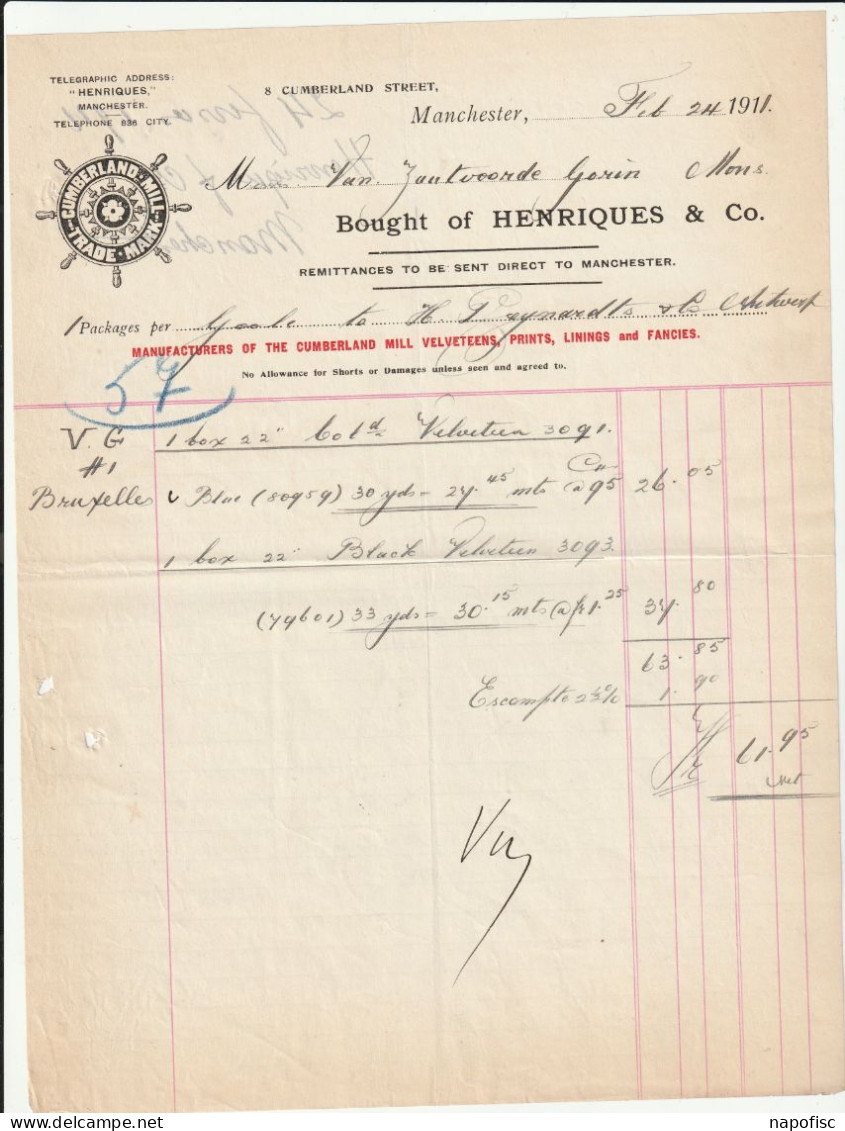 TELEGRAPHIC ADDRESS:
"HENRIQUES,"
MANCHESTER.
TELEPHONE 836 CITY.
8 CUMBERLAND STREET,
Manchester, Feb 24 1911.
CUMBERLAND·MILL
TRADE·MARK
Messrs Van Zantvoorde Gorin Mons
Bought of HENRIQUES & Co.
REMITTANCES TO BE SENT DIRECT TO MANCHESTER.
1 Packages per Goole to H. & Co Antwerp
MANUFACTURERS OF THE CUMBERLAND MILL VELVETEENS, PRINTS, LININGS and FANCIES.
No Allowance for Shorts or Damages unless seen and agreed to.
57
V. G 1 box 22" Col'd Velveteen 3091.
#1
Bruxelles Blue (80959) 30 yds = 27.45 mts @ 95 26.05
1 box 22" Black Velveteen 3093.
(79601) 33 yds = 30.15 mts @ fr 1.25 37.80
63.85
Escompte 2½% 1.90
Fr 61.95
net
napofisc